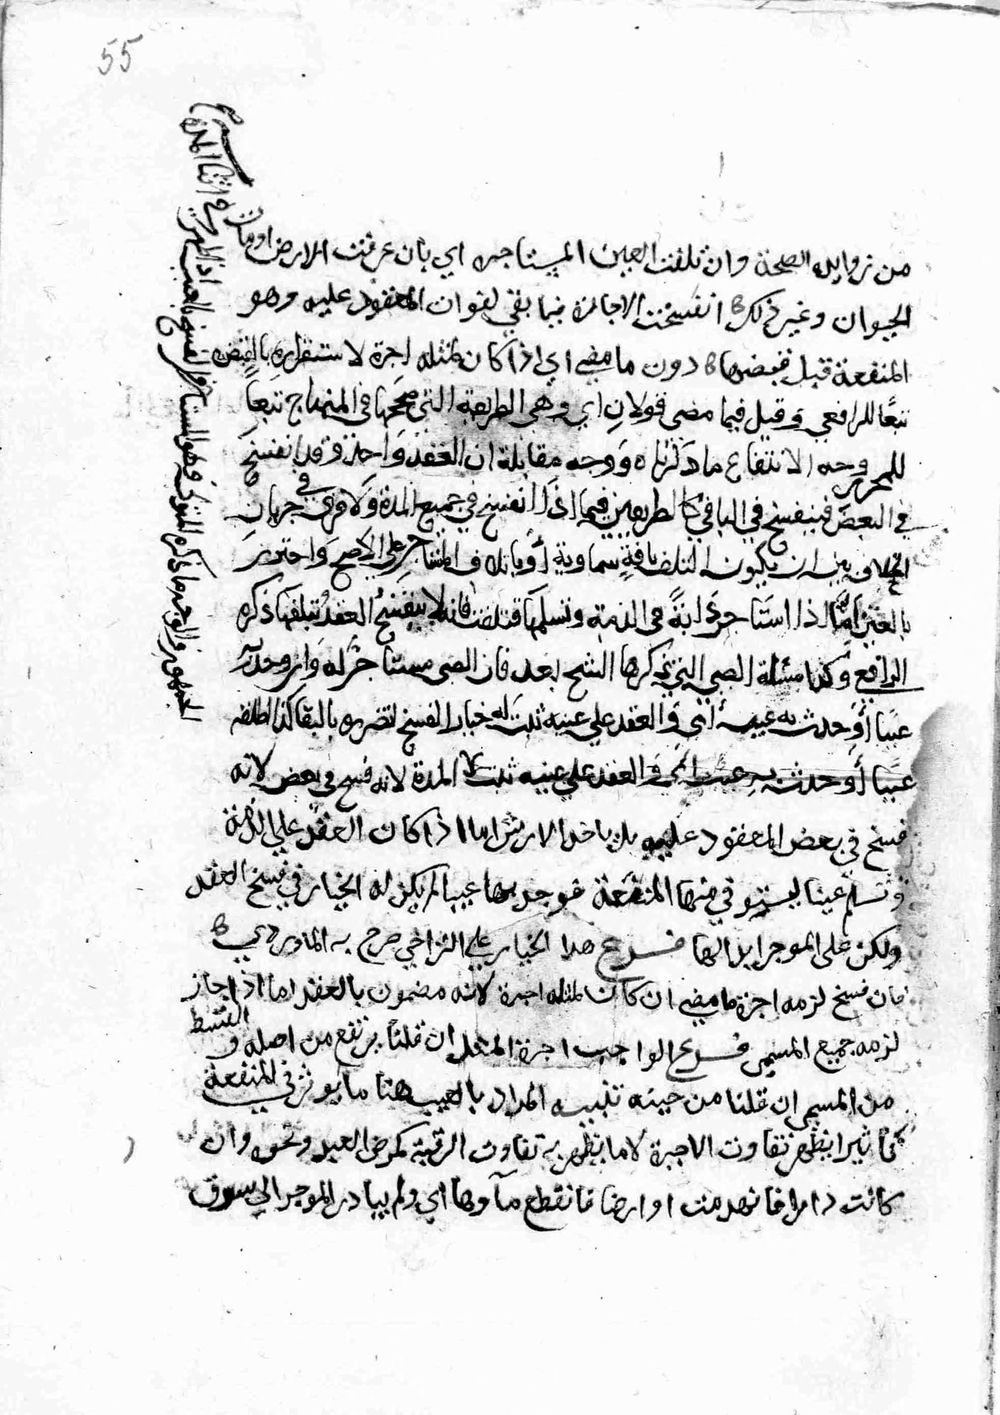 55
من زوايده الصحة وان تلفت العين المستاجرة اي بان غرقت الارض او مات
الحيوان وغير ذلك انفسخت الاجارة فيما بقي لفوات المعقود عليه وهو
المنفعة قبل قبضها دون ما مضى اي اذا كان لمثله اجرة لاستقراره بالقبض
تبعًا للرافعي وقيل فيما مضى قولان اي وهي الطريقة التي صححها في المنهاج تبعًا
للمحرر وجه الانتفاع ما ذكرناه ووجه مقابلة ان العقد واحد وقد انفسخ
في البعض فينفسخ في الباقي كالطريقين فيما اذا انفسخ في جميع المدة ولا فرق في جريان
الخلاف بين ان يكون التلف بافة سماوية او باتلاف المستاجر على الاصح واحترز
بالعين اذا استاجر دابةً في الذمة وتسلمها فتلفت فانه لا ينفسخ العقد بتلفها ذكره
الرافعي وكذا مسئلة الصبي التي ذكرها الشيخ بعد فان الصبي مستاجر له وان وجد به
عيبا او حدث به عيب انثى والعقد على عينه ثبت له خيار الفسخ لتضرره بالبقا كذا اطلقه
عيبا او حدث به عيب والعقد على عينه ثبت المدة لانه فسخ في بعض لانه
فسخ في بعض المعقود عليه بل ياخذ الارش اما اذا كان العقد على الذمة
وتسلم عينا ليستوفي منها المنفعة فوجد بها عيبا لم يكن له الخيار في فسخ العقد
ولكن على الموجر ابدالها فرع هذا الخيار على التراخي صرح به الماوردي
فان فسخ لزمه اجرة ما مضى ان كان لمثله اجرة لانه مضمون بالعقد اما اذا اجاز
لزمه جميع المسمى فرع الواجب اجرة المثل ان قلنا يرتفع من اصله و القسط
من المسمى ان قلنا من حينه تنبيه المراد بالعيب هنا ما يوثر في المنفعة
تاثيرا يظهر تفاوت الاجرة لا ما يظهر به تفاوت الرقبة كمرض العبد ونحوه وان
كانت دارا فانهدمت او ارضا فانقطع ماوها اي ولم يبادر الموجر الى سوق
الجمهور والوجه ما ذكره المتولي وهو المستاجر الفسخ بالعيب اذا ظهر في اثنا المدة